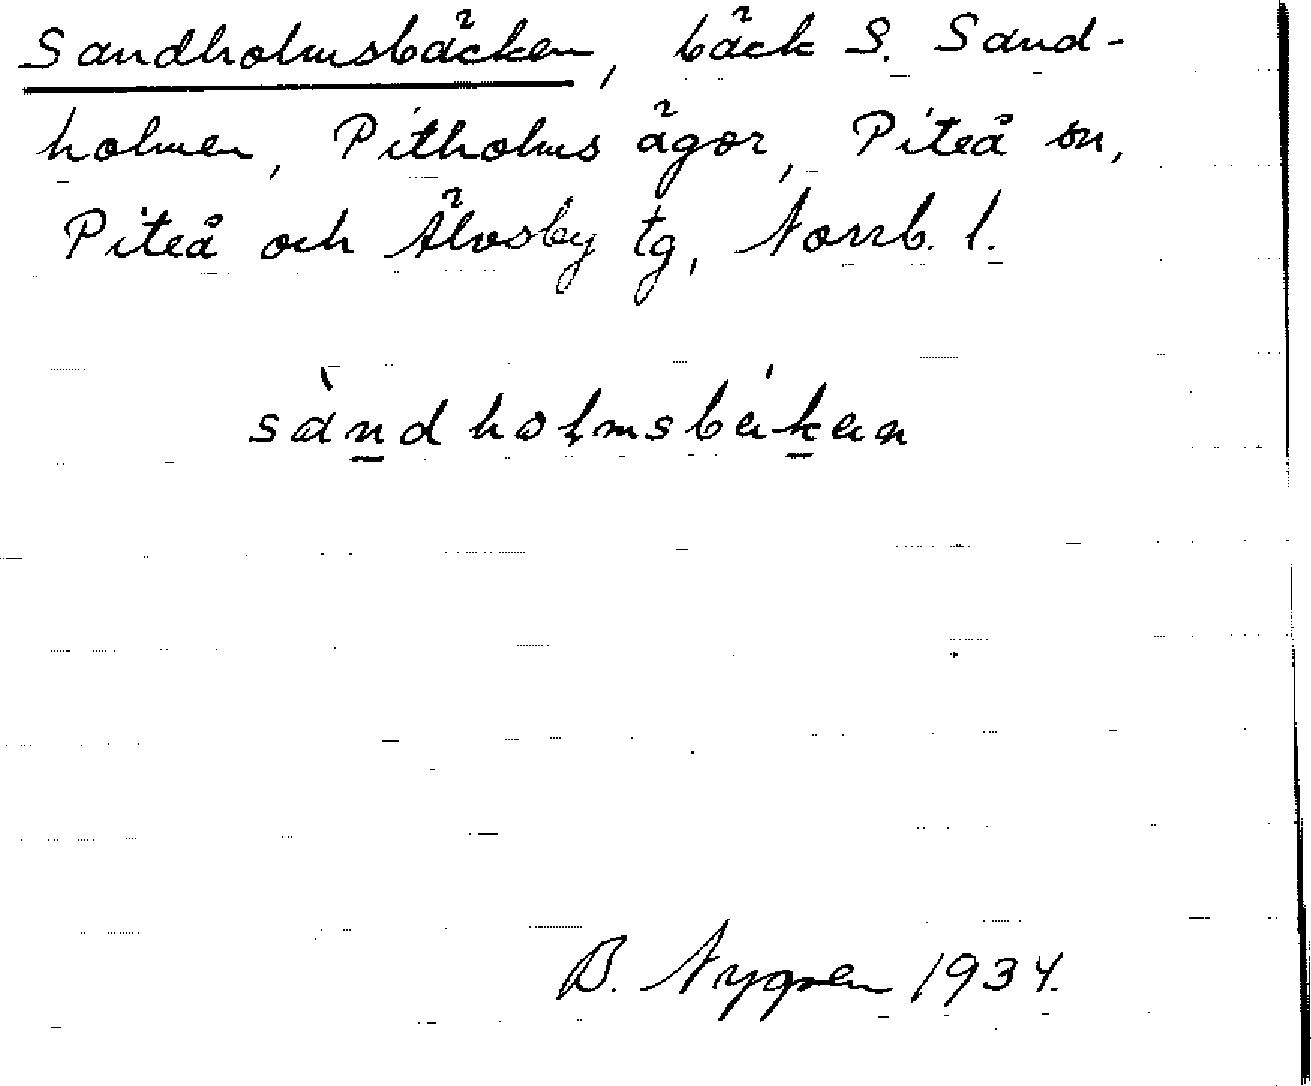 Sandholmsbäcken, bäck S. Sand-
holmen, Pitholms ägor, Piteå sn,
Piteå och Älvsby tg, Norrb. l.
sàndholmsbéken
B. Nygren 1934.